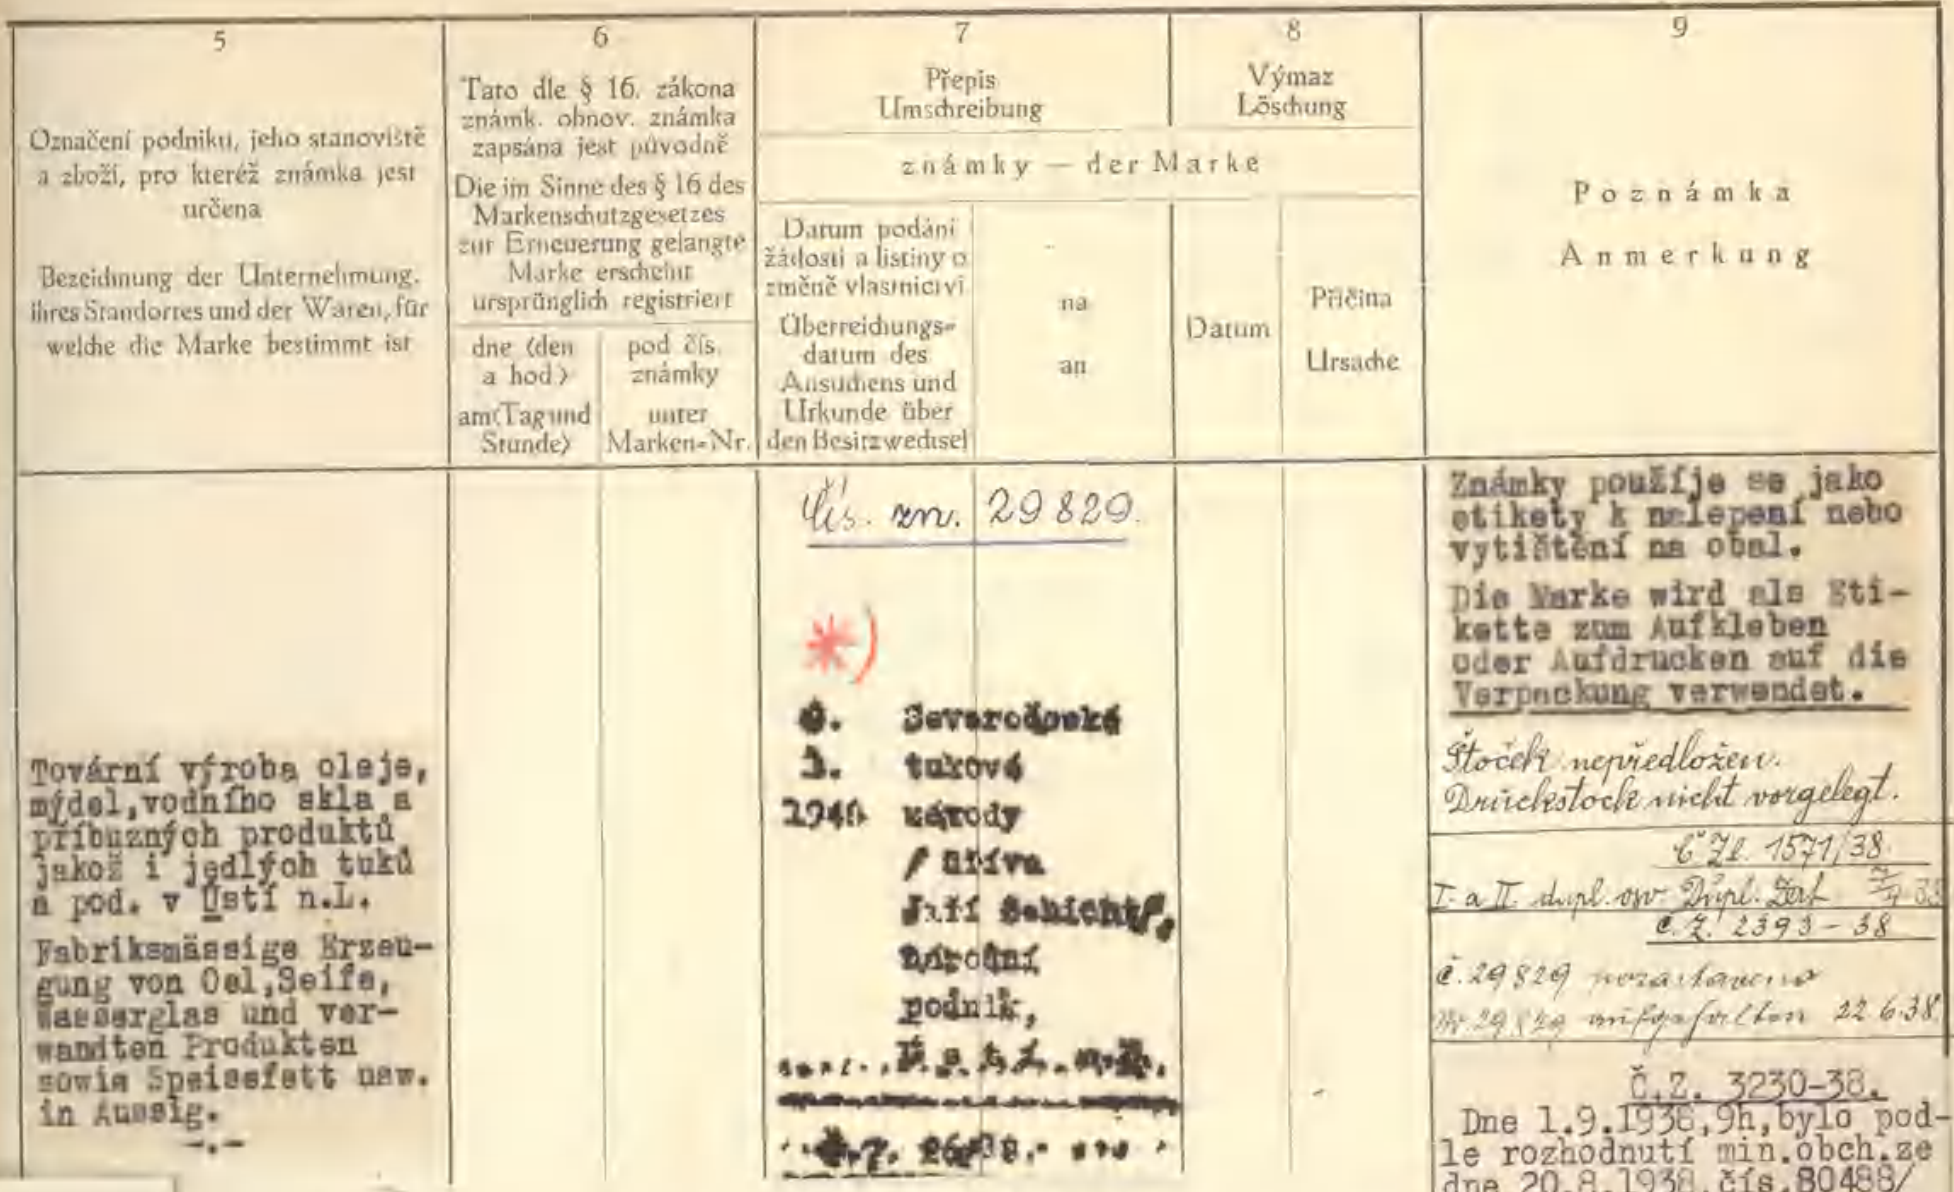 5
Označení podniku, jeho stanoviště
a zboží, pro kteréž známka jest
určena
Bezeichnung der Unternehmung,
ihres Standortes und der Waren, für
welche die Marke bestimmt ist
6
Tato dle § 16. zákona
známk. obnov. známka
zapsána jest původně
Die im Sinne des § 16 des
Markenschutzgesetzes
zur Erneuerung gelangte
Marke erscheint
ursprünglich registriert
dne (den
a hod.)
am (Tag und
Stunde)
pod čís.
známky
unter
Marken-Nr.
7
Přepis
Umschreibung
8
Výmaz
Löschung
známky — der Marke
Datum podání
žádosti a listiny o
změně vlastnictví
Überreichungs-
datum des
Ansuchens und
Urkunde über
den Besitzwechsel
na
an
Datum
Příčina
Ursache
9
Poznámka
Anmerkung
Tovární výroba oleje,
mýdel, vodního skla a
příbuzných produktů
jakož i jedlých tuků
a pod. v Ústí n.L.
Fabriksmässige Erzeu-
gung von Oel, Seife,
Wasserglas und ver-
wandten Produkten
sowie Speisefett usw.
in Aussig.
-.-
Čís. zn. 29829.
*)
Severočeské
tukové
1946 závody
/ dříve
Jiří Schicht/,
národní
podnik,
Známky použije se jako
etikety k nalepení nebo
vytištění na obal.
Die Marke wird als Eti-
kette zum Aufkleben
oder Aufdrucken auf die
Verpackung verwendet.
Štoček nepředložen.
Druckstock nicht vorgelegt.
1571/38.
I. a II. dupl. Dupl.
č.Z. 2393-38
č. 29829
29829 22.6.38.
Č.Z. 3230-38.
Dne 1.9.1938, 9h, bylo pod-
le rozhodnutí min.obch.ze
dne 20.8.1938, čís.80488/